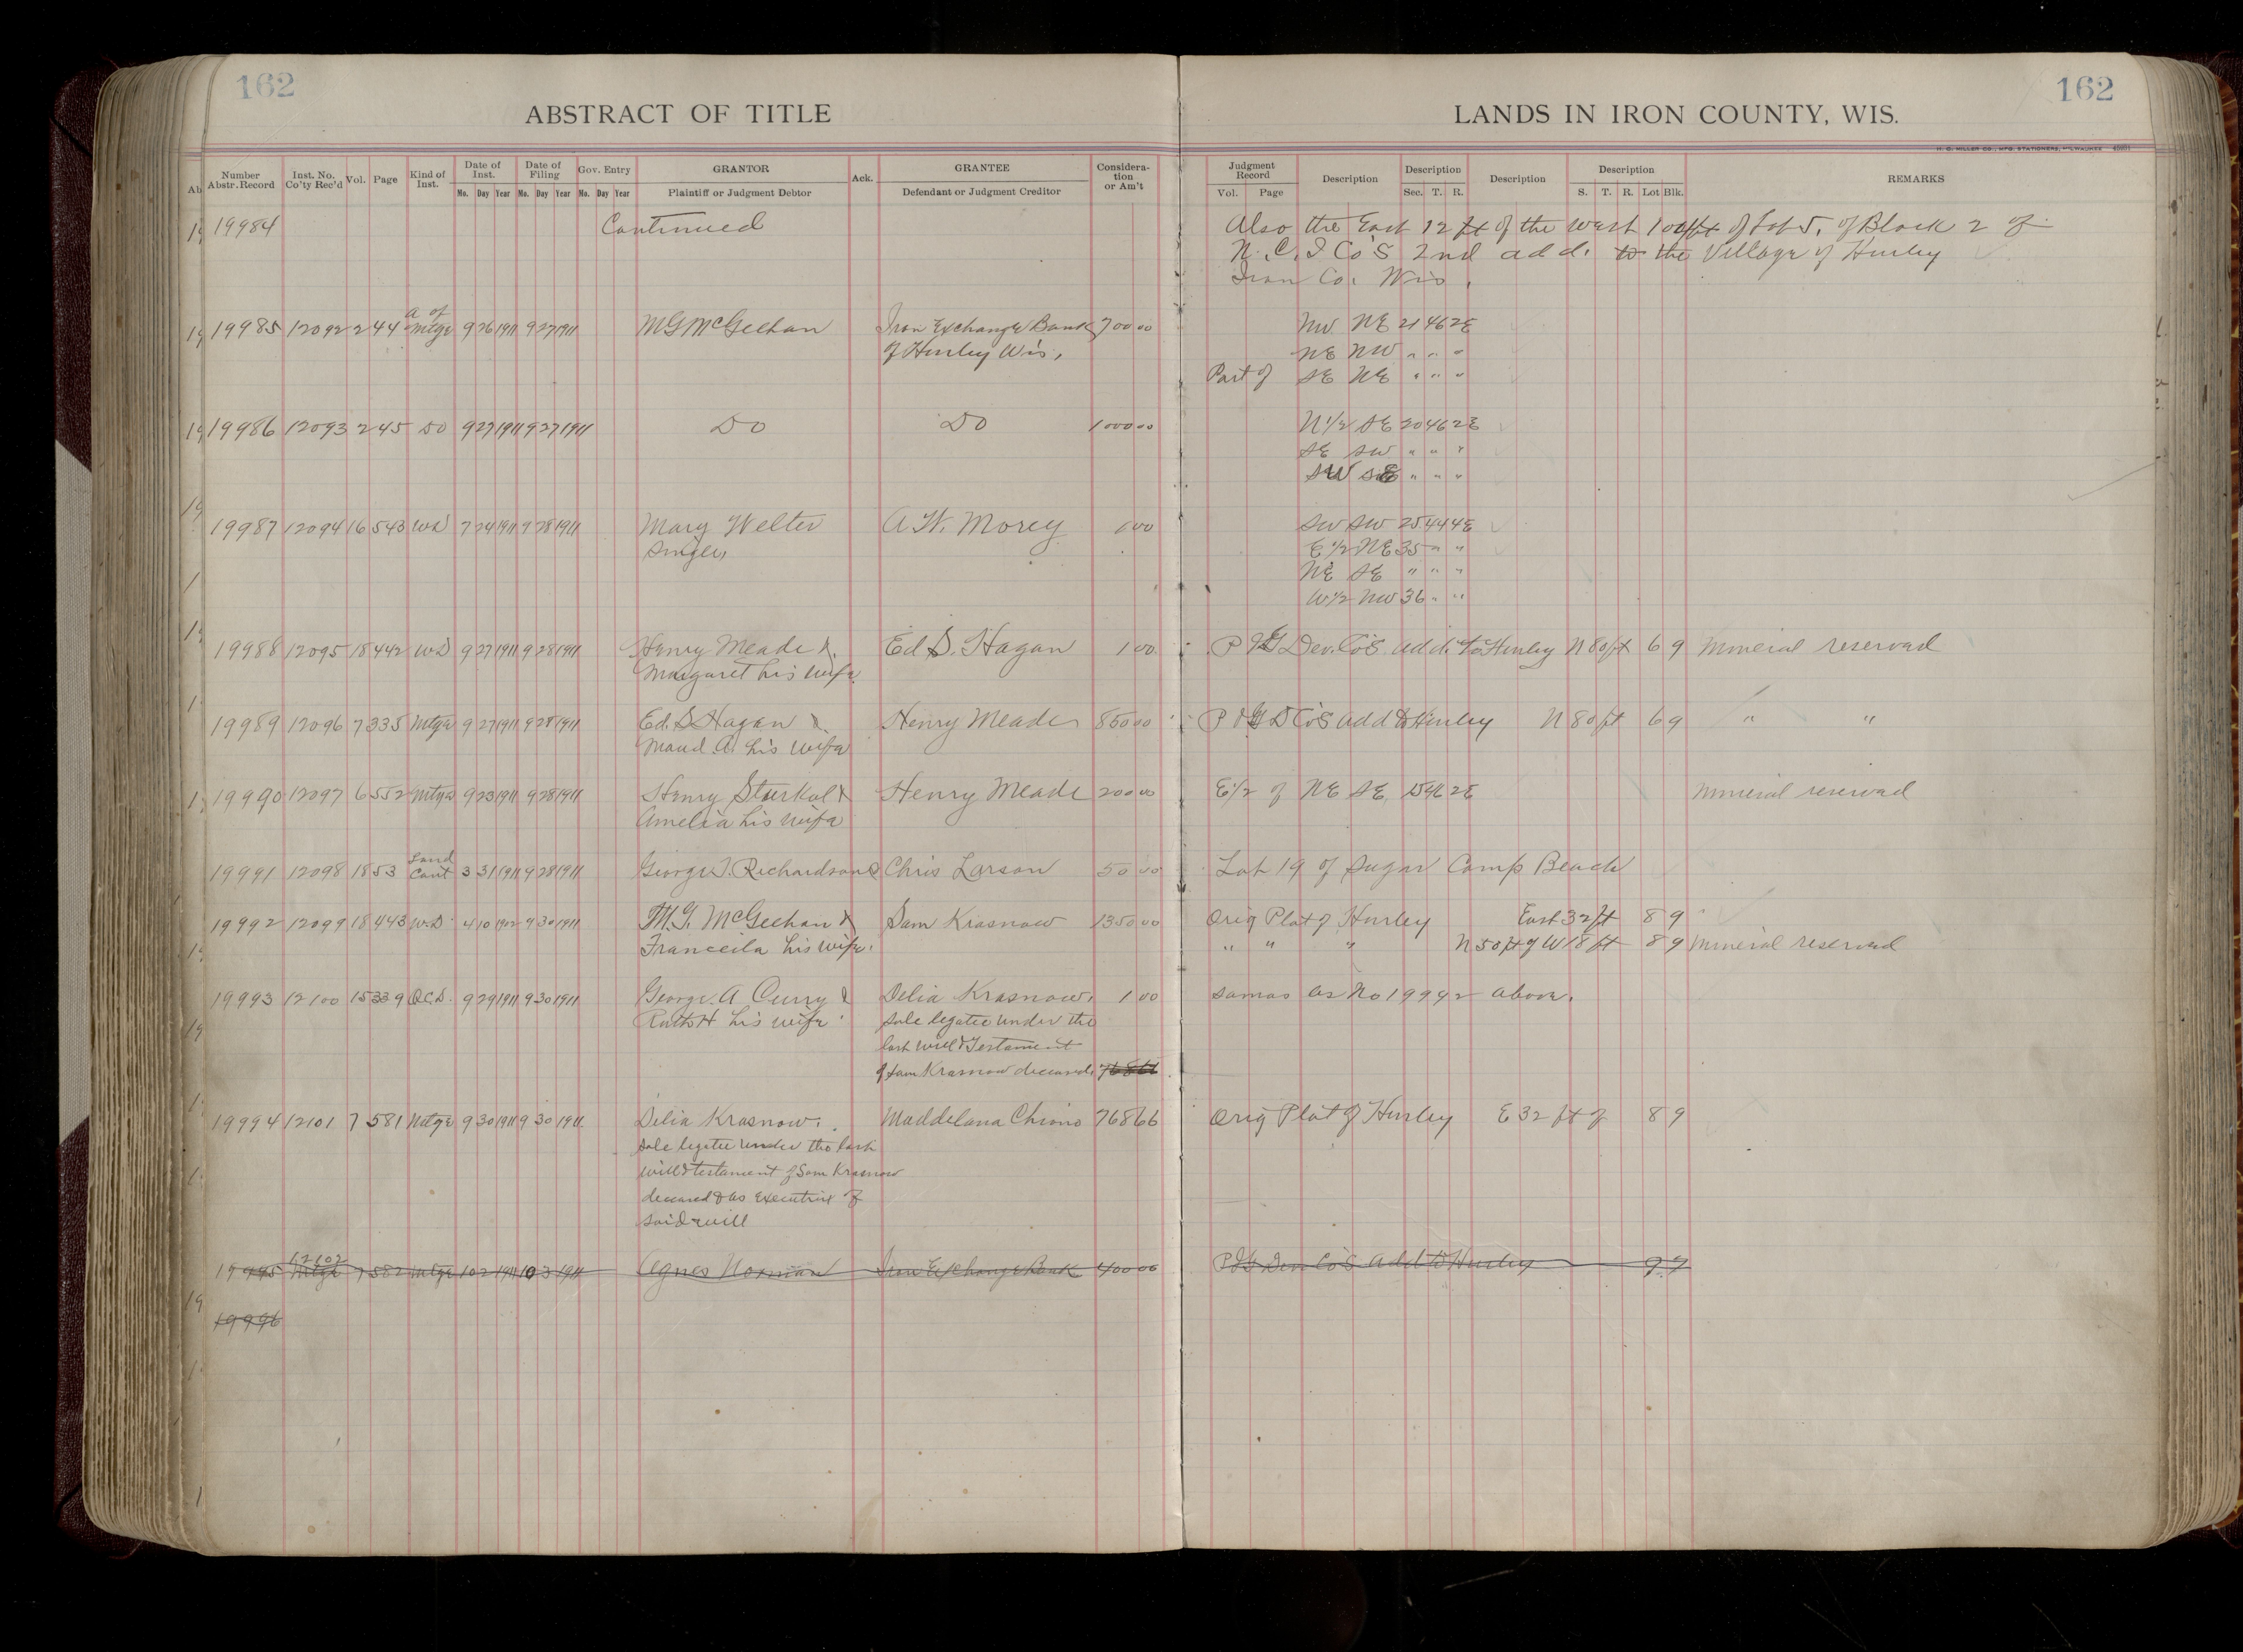 162
162
ABSTRACT OF TITLE
LANDS IN IRON COUNTY, WIS.
H. C. MILLER CO., MFG. STATIONERS, MILWAUKEE
Number Abstr. Record Inst. No. Co'ty Rec'd Vol. Page Kind of Inst. Date of Inst. Date of Filing Gov. Entry GRANTOR Ack. GRANTEE Consideration or Am't Judgment Record Description Description Description Description REMARKS
No. Day Year No. Day Year No. Day Year Plaintiff or Judgment Debtor Defendant or Judgment Creditor Vol. Page Sec. T. R. S. T. R. Lot Blk.
19984 Continued Also the East 12 ft of the West 100 ft of Lot 5, of Block 2 of
N. C. I Co's 2nd add. to the Village of Hurley
Iron Co. Wis.
19985 12092 2 44 A of Mtge 9 26 1911 9 27 1911 M G McGeehan Iron Exchange Bank 700 00 NW NE 21 46 2E
of Hurley Wis. NE NW " " "
Part of SE NE " " "
19986 12093 2 45 DO 9 27 1911 9 27 1911 DO DO 1000 00 N 1/2 SE 20 46 2E
SE SW " " "
SW SE " " "
19987 12094 16 543 WD 7 24 1911 9 28 1911 Mary Welter A. W. Morey 1 00 SW SW 25 44 4E
single, E 1/2 NE 35 " "
NE SE " " "
W 1/2 NW 36 " "
19988 12095 18 442 WD 9 27 1911 9 28 1911 Henry Meade & Ed S. Hagan 1 00 P & G Dev. Co's add. to Hurley N 80 ft 6 9 Mineral reserved
Margaret his wife
19989 12096 7 335 Mtge 9 27 1911 9 28 1911 Ed. S Hagan & Henry Meade 850 00 P & G D Co's add to Hurley N 80 ft 6 9 " "
Maud A. his wife
19990 12097 6 552 Mtge 9 23 1911 9 28 1911 Henry Sturkol & Henry Meade 200 00 E 1/2 of NE SE 15 46 2E Mineral reserved
Amelia his wife
19991 12098 18 53 Land Cont 3 31 1911 9 28 1911 George I. Richardson Chris Larson 50 00 Lot 19 of Sugar Camp Beach
19992 12099 18 443 W.D. 4 10 1902 9 30 1911 M. G. McGeehan & Sam Krasnow 1350 00 Orig Plat of Hurley East 32 ft 8 9
Franceila his wife. " " " N 50 ft of W 18 ft 8 9 Mineral reserved
19993 12100 15 339 Q.C.D. 9 29 1911 9 30 1911 George A Curry & Delia Krasnow. 1 00 Same as No 19992 above.
Ruth H his wife sole legatee under the
last will & Testament
of Sam Krasnow deceased. 768 66
19994 12101 7 581 Mtge 9 30 1911 9 30 1911 Delia Krasnow. Maddelana Chimo 768 66 Orig Plat of Hurley E 32 ft of 8 9
sole legatee under the last
will & testament of Sam Krasnow
deceased & as Executrix of
said will
19995 12102 Mtge 7 582 Mtge 10 2 1911 10 3 1911 Agnes Norman Iron Exchange Bank 400 00 P & G Dev Co's Add to Hurley 9 7
19996